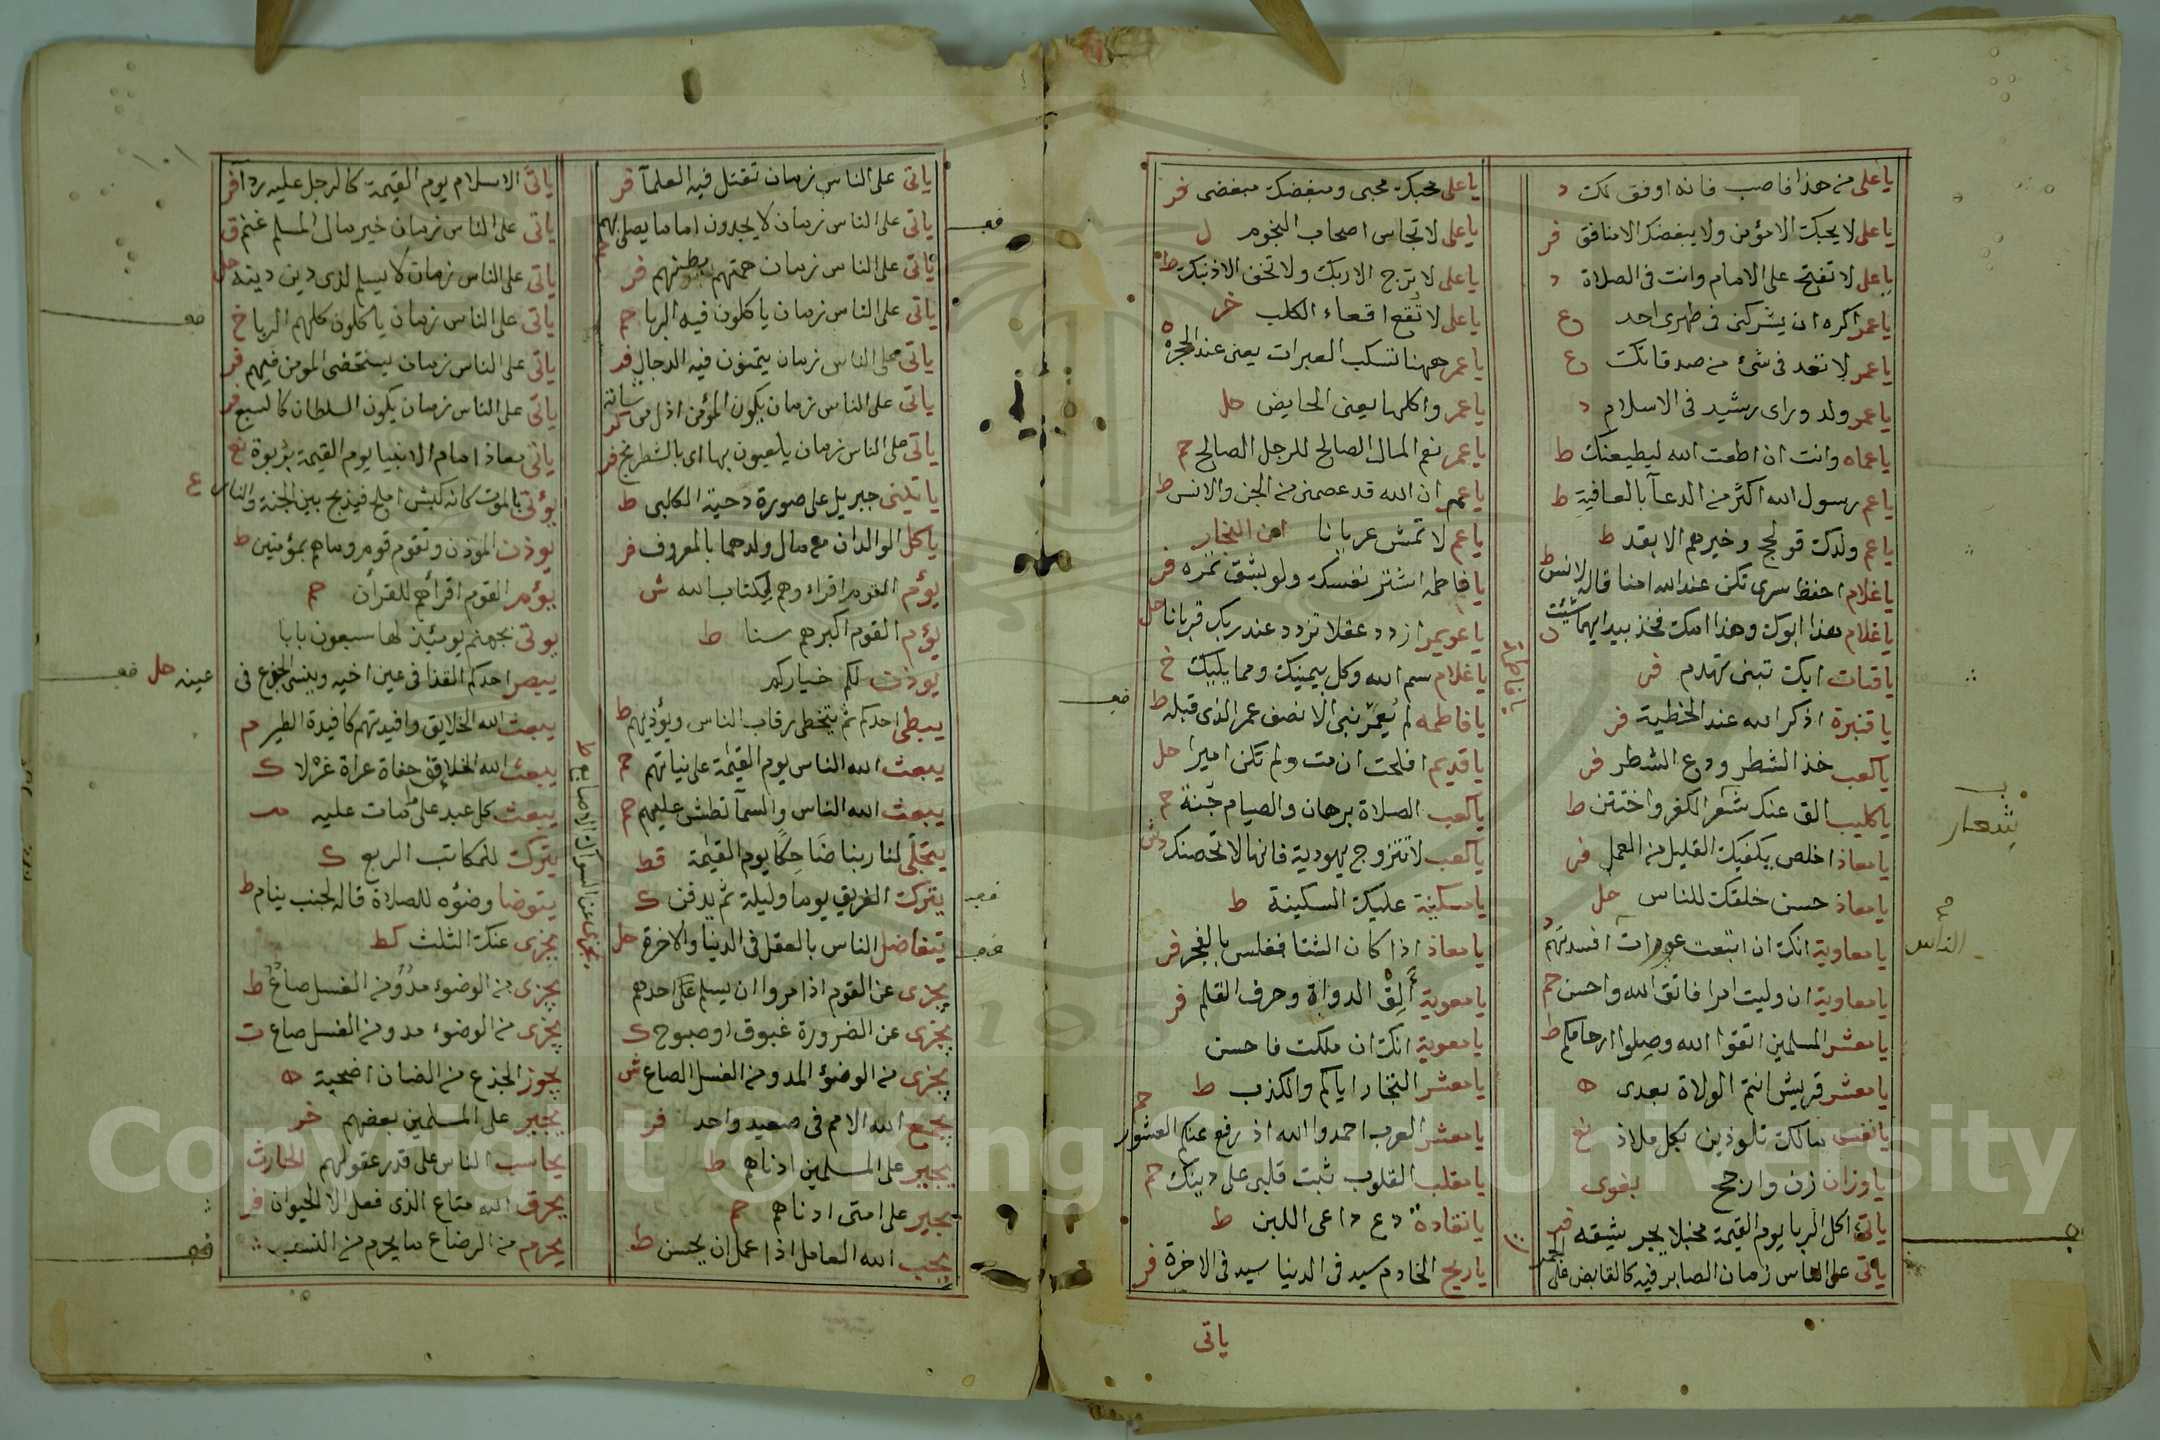 يا على من هذا فاصب فانه اوفق لك د
يا على لا يحبك الا مؤمن ولا يبغضك الا منافق فر
يا على لا تفتح على الامام وانت فى الصلاة د
يا عمر اكره ان يشركنى فى طهرى احد ع
يا عمر لا تعد فى شئ من صدقاتك ع
يا عمر ولد وراى رشيد فى الاسلام د
يا عماه وانت ان اطعت الله ليطيعنك ط
يا عم رسول الله اكثر من الدعآ بالعافية ط
يا عم ولدك قولج وخيرهم الابقد ط
يا غلام احفظ سرى تكن عند الله امنا قال لانس ط
يا غلام هذا ابوك وهذا امك فخذ بيد ايهما شئت ن
يا قتات ابك تبنى تهدم فر
يا قنبرة اذكر الله عند الخطية فر
يا كعب خذ الشطر ودع الشطر فر
يا كليب الق عنك شعر الكفر واختتن ط
يا معاذ اخلص يكفيك القليل من العمل فر
يا معاذ حسن خلقك للناس حل
يا معاوية انك ان اتبعت عورات افسدتهم د
يا معاوية ان وليت امرا فاتق الله واحسن حم
يا معشر المسلمين اتقوا الله وصلوا ارحامكم ط
يا معشر قريش انتم الولاة بعدى ه
يا نفس مالك تلوذين بكل ملاذ نع
يا وزان زن وارجح بغوى
ياتى اكل الربا يوم القيمة مخبلا يجر شيقه فر
ياتى على الناس زمان الصابر فيه كالقابض على الجمر
ب
شعار
صح
الناس
يا فاطمة
ت
يا على محبك محبى ومبغضك مبغضى فر
يا على لا تجالس اصحاب النجوم ل
يا على لا ترج الا ربك ولا تخف الا ذنبك ط
يا على لا تقع اقعاء الكلب خر
يا عمر ههنا تسكب العبرات يعنى عند الحجر ه
يا عمر واكلها يعنى الحايض حل
يا عمر نعم المال الصالح للرجل الصالح حم
يا عم ان الله قد عصمنى من الجن والانس ط
يا عم لا تمش عريانا ابن النجار
يا فاطمه اشتر نفسك ولو بشق تمره فر
يا عويمر ازدد عقلا تزدد عند ربك قربانا حل
يا غلام سم الله وكل بيمينك ومما يليك خ
يا فاطمه لم يعمر نبى الا نصف عمر الذى قبله ط
يا قديم افلحت ان مت ولم تكن اميرا حل
يا كعب الصلاة برهان والصيام جنة حم
يا كعب لا تتزوج يهودية فانها لا تحصنك ش
يا مسكينة عليك السكينة ط
يا معاذ اذا كان الشتا فغلس بالفجر فر
يا معوية ألق الدواة وحرف القلم فر
يا معوية انك ان ملكت فاحسن
يا معشر التجار اياكم والكذب ط
يا معشر العرب احمدوا الله اذ رفع عنكم العشور حم
يا مقلب القلوب ثبت قلبى على دينك حم
يا نقادة دع داعى اللبن ط
يا ريح الخادم سيد فى الدنيا سيد فى الاخرة فر
ياتى
ياتى على الناس زمان تقتل فيه العلمآ فر
ياتى على الناس زمان لا يجدون اماما يصلى بهم حم
ياتى على الناس زمان همتهم بطنهم فر
ياتى على الناس زمان ياكلون فيه الربا حم
ياتى على الناس زمان يتمنون فيه الدجال فر
ياتى على الناس زمان يكون المؤمن اذل من شاته كر
ياتى على الناس زمان يلعبون بها اى بالشطرنج فر
ياتينى جبريل على صورة دحية الكلبى ط
ياكل الوالدان من مال ولدهما بالمعروف فر
يؤم القوم اقراءوهم لكتاب الله ش
يؤم القوم اكبرهم سنا ط
يوذن لكم خياركم
يبطى احدكم ثم يتخطى رقاب الناس ويؤذيهم ط
يبعث الله الناس يوم القيمة على نياتهم حم
يبعث الله الناس والسمآ تطش عليهم حم
يتجلى لنا ربنا ضاحكا يوم القيمة قط
يترك الغريق يوما وليلة ثم يدفن ك
يتفاضل الناس بالعقل فى الدنيا والاخرة حل
يجزى عن القوم اذا مروا ان يسلم على احدهم
يجزى عن الضرورة غبوق او صبوح ك
يجزى من الوضؤ المد ومن الغسل الصاع ش
يجمع الله الامم فى صعيد واحد فر
يجير على المسلمين ادناهم ط
يجير على امتى ادناهم حم
يحب الله العامل اذا عمل ان يحسن ط
يجزى عن السواك الاصابع ط
ياتى الاسلام يوم القيمة كالرجل عليه ردا فر
ياتى على الناس زمان خير مال المسلم غنم ق
ياتى على الناس زمان لا يسلم لذى دين دينه حل
ياتى على الناس زمان ياكلون كلهم الربا خ
ياتى على الناس زمان يستخفى المومن فيهم فر
ياتى على الناس زمان يكون السلطان كالسبع فر
ياتى معاذ امام الانبيا يوم القيمة بربوة نع
يؤتى بالموت كانه كبش املح فيذبح بين الجنة والناس ع
يوذن الموذن وتقوم قوم وما هم بمؤمنين ط
يؤمر القوم اقرأهم للقرأن حم
يوتى بجهنم يومئذ لها سبعون بابا
يبصر احدكم القذا فى عين اخيه وينسى الجذع فى عينه حل
يبعث الله الخلايق وافيدتهم كافيدة الطير م
يبعث الله الخلايق حفاة عراة غرلا ك
يبعث كل عبد على ما مات عليه م
يترك للمكاتب الربع ك
يتوضا وضؤه للصلاة قاله لجنب ينام ط
يجزى عنك الثلث كط
يجزى من الوضوء مد ومن الغسل صاع ط
يجزى من الوضوء مد ومن الغسل صاع ت
يجوز الجذع من الضان اضحية ه
يجير على المسلمين بعضهم خر
يحاسب الناس على قدر عقولهم الحارث
يحرق الله متاع الذى فعل الا الحيوان فر
يحرم من الرضاع ما يحرم من النسب
١٠١
Copyright © King Saud University
1957